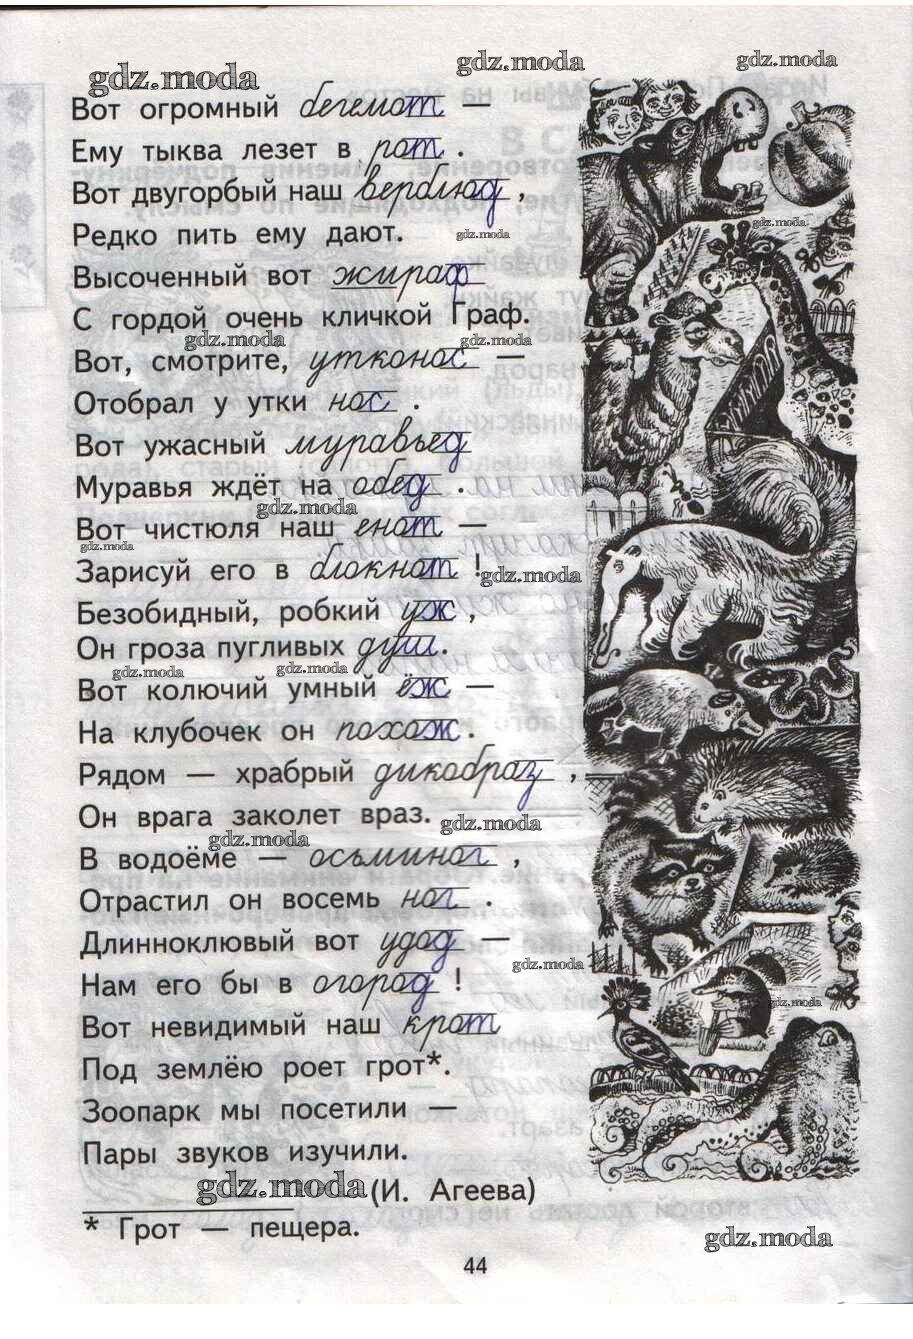 gdz.moda gdz.moda gdz.moda
Вот огромный бегемот —
Ему тыква лезет в рот .
Вот двугорбый наш верблюд ,
gdz.moda
Редко пить ему дают.
gdz.moda
Высоченный вот жираф
С гордой очень кличкой Граф.
gdz.moda gdz.moda
Вот, смотрите, утконос —
Отобрал у утки нос .
Вот ужасный муравьед
Муравья ждёт на обед .
gdz.moda
Вот чистюля наш енот —
gdz.moda
Зарисуй его в блокнот !
gdz.moda
Безобидный, робкий уж ,
Он гроза пугливых душ.
gdz.moda gdz.moda
Вот колючий умный ёж —
На клубочек он похож .
Рядом — храбрый дикобраз ,
Он врага заколет враз.
gdz.moda
gdz.moda
В водоёме — осьминог ,
Отрастил он восемь ног .
Длинноклювый вот удод —
gdz.moda
Нам его бы в огород !
gdz.moda
Вот невидимый наш крот
Под землёю роет грот*.
Зоопарк мы посетили —
Пары звуков изучили.
gdz.moda (И. Агеева)
* Грот — пещера.
gdz.moda
44